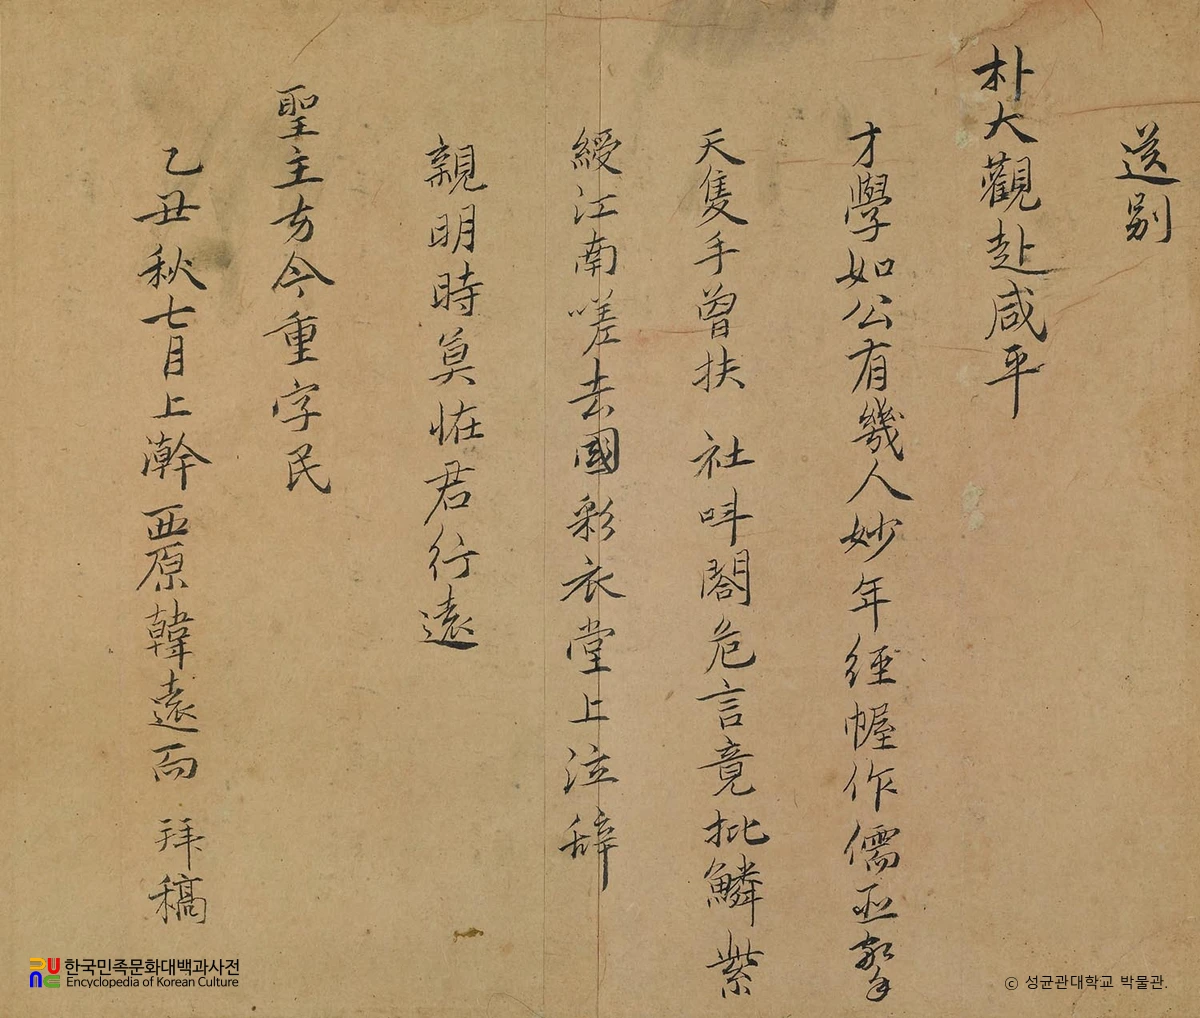 送別
朴大觀赴咸平
才學如公有幾人妙年經幄作儒臣擎
天隻手曾扶 社叫閤危言竟批鱗紫
綬江南嗟去國彩衣堂上泣辞
親明時莫恠君行遠
聖主方今重字民
乙丑秋七月上澣西原韓遠而 拜稿
한국민족문화대백과사전
Encyclopedia of Korean Culture
ⓒ 성균관대학교 박물관.